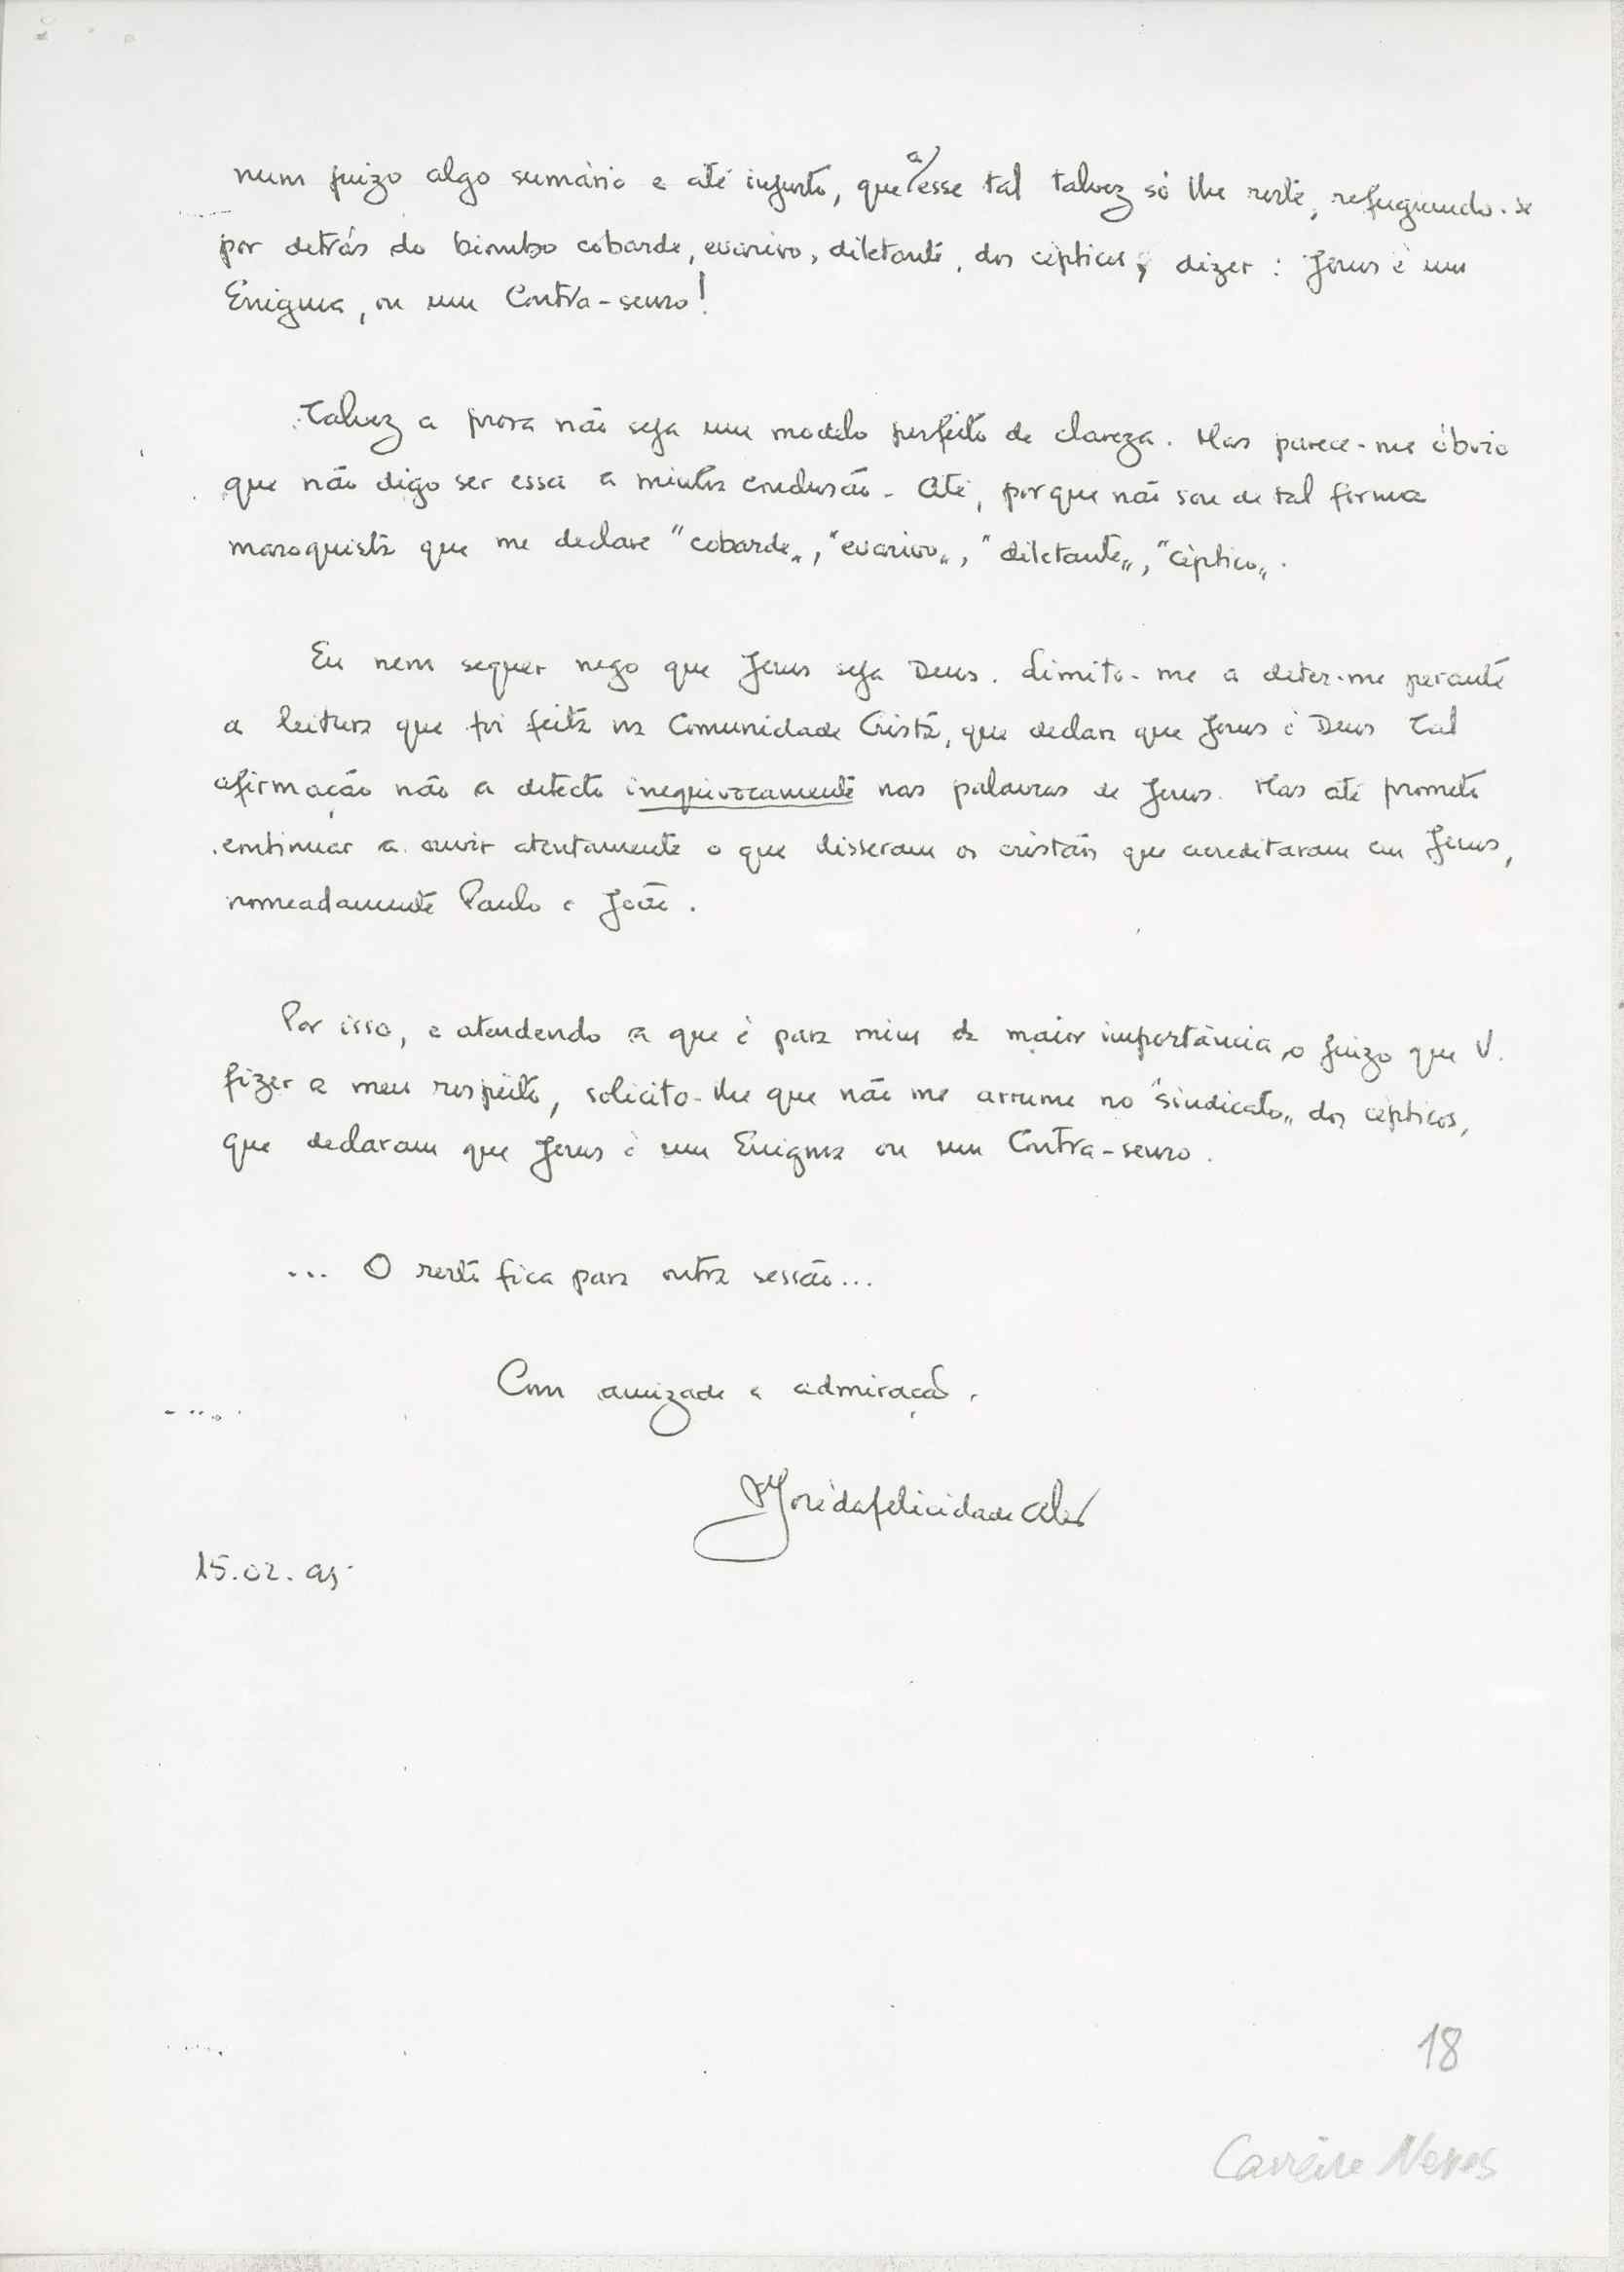 num juizo algo sumário e até injusto, que a esse tal talvez só lhe reste, refugiando-se
por detrás do biombo cobarde, evasivo, diletante, dos cépticos, dizer: Jesus é um
Enigma, ou um Contra-senso!
Talvez a prosa não seja um modelo perfeito de clareza. Mas parece-me óbvio
que não digo ser essa a minha conclusão. Até, porque não sou de tal forma
masoquista que me declare "cobarde", "evasivo", "diletante", "céptico".
Eu nem sequer nego que Jesus seja Deus. Limito-me a deter-me perante
a leitura que foi feita na Comunidade Cristã, que declara que Jesus é Deus Tal
afirmação não a detecto inequivocamente nas palavras de Jesus. Mas até prometo
continuar a ouvir atentamente o que disseram os cristãos que acreditaram em Jesus,
nomeadamente Paulo e João.
Por isso, e atendendo a que é para mim da maior importância, o juizo que V.
fizer a meu respeito, solicito-lhe que não me arrume no "sindicato" dos cépticos,
que declaram que Jesus é um Enigma ou um Contra-senso.
... O resto fica para outra sessão...
Com amizade e admiração.
José da felicidade Alves
15.02.95
18
Carreira Neves